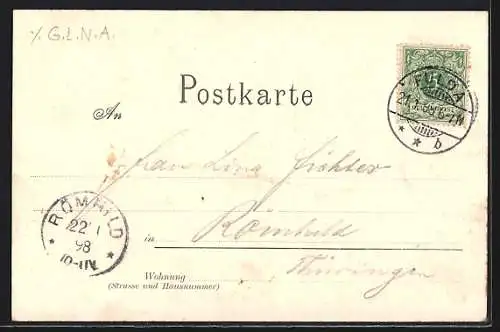 % G.t.N.A.
FULDA
21.1.98.6-7N.
* * b
Postkarte
An
Frau Lina Fichter
RÖMHILD
22 1
98
10-11V.
in Römhild
Thüringen
Wohnung
(Strasse und Hausnummer)